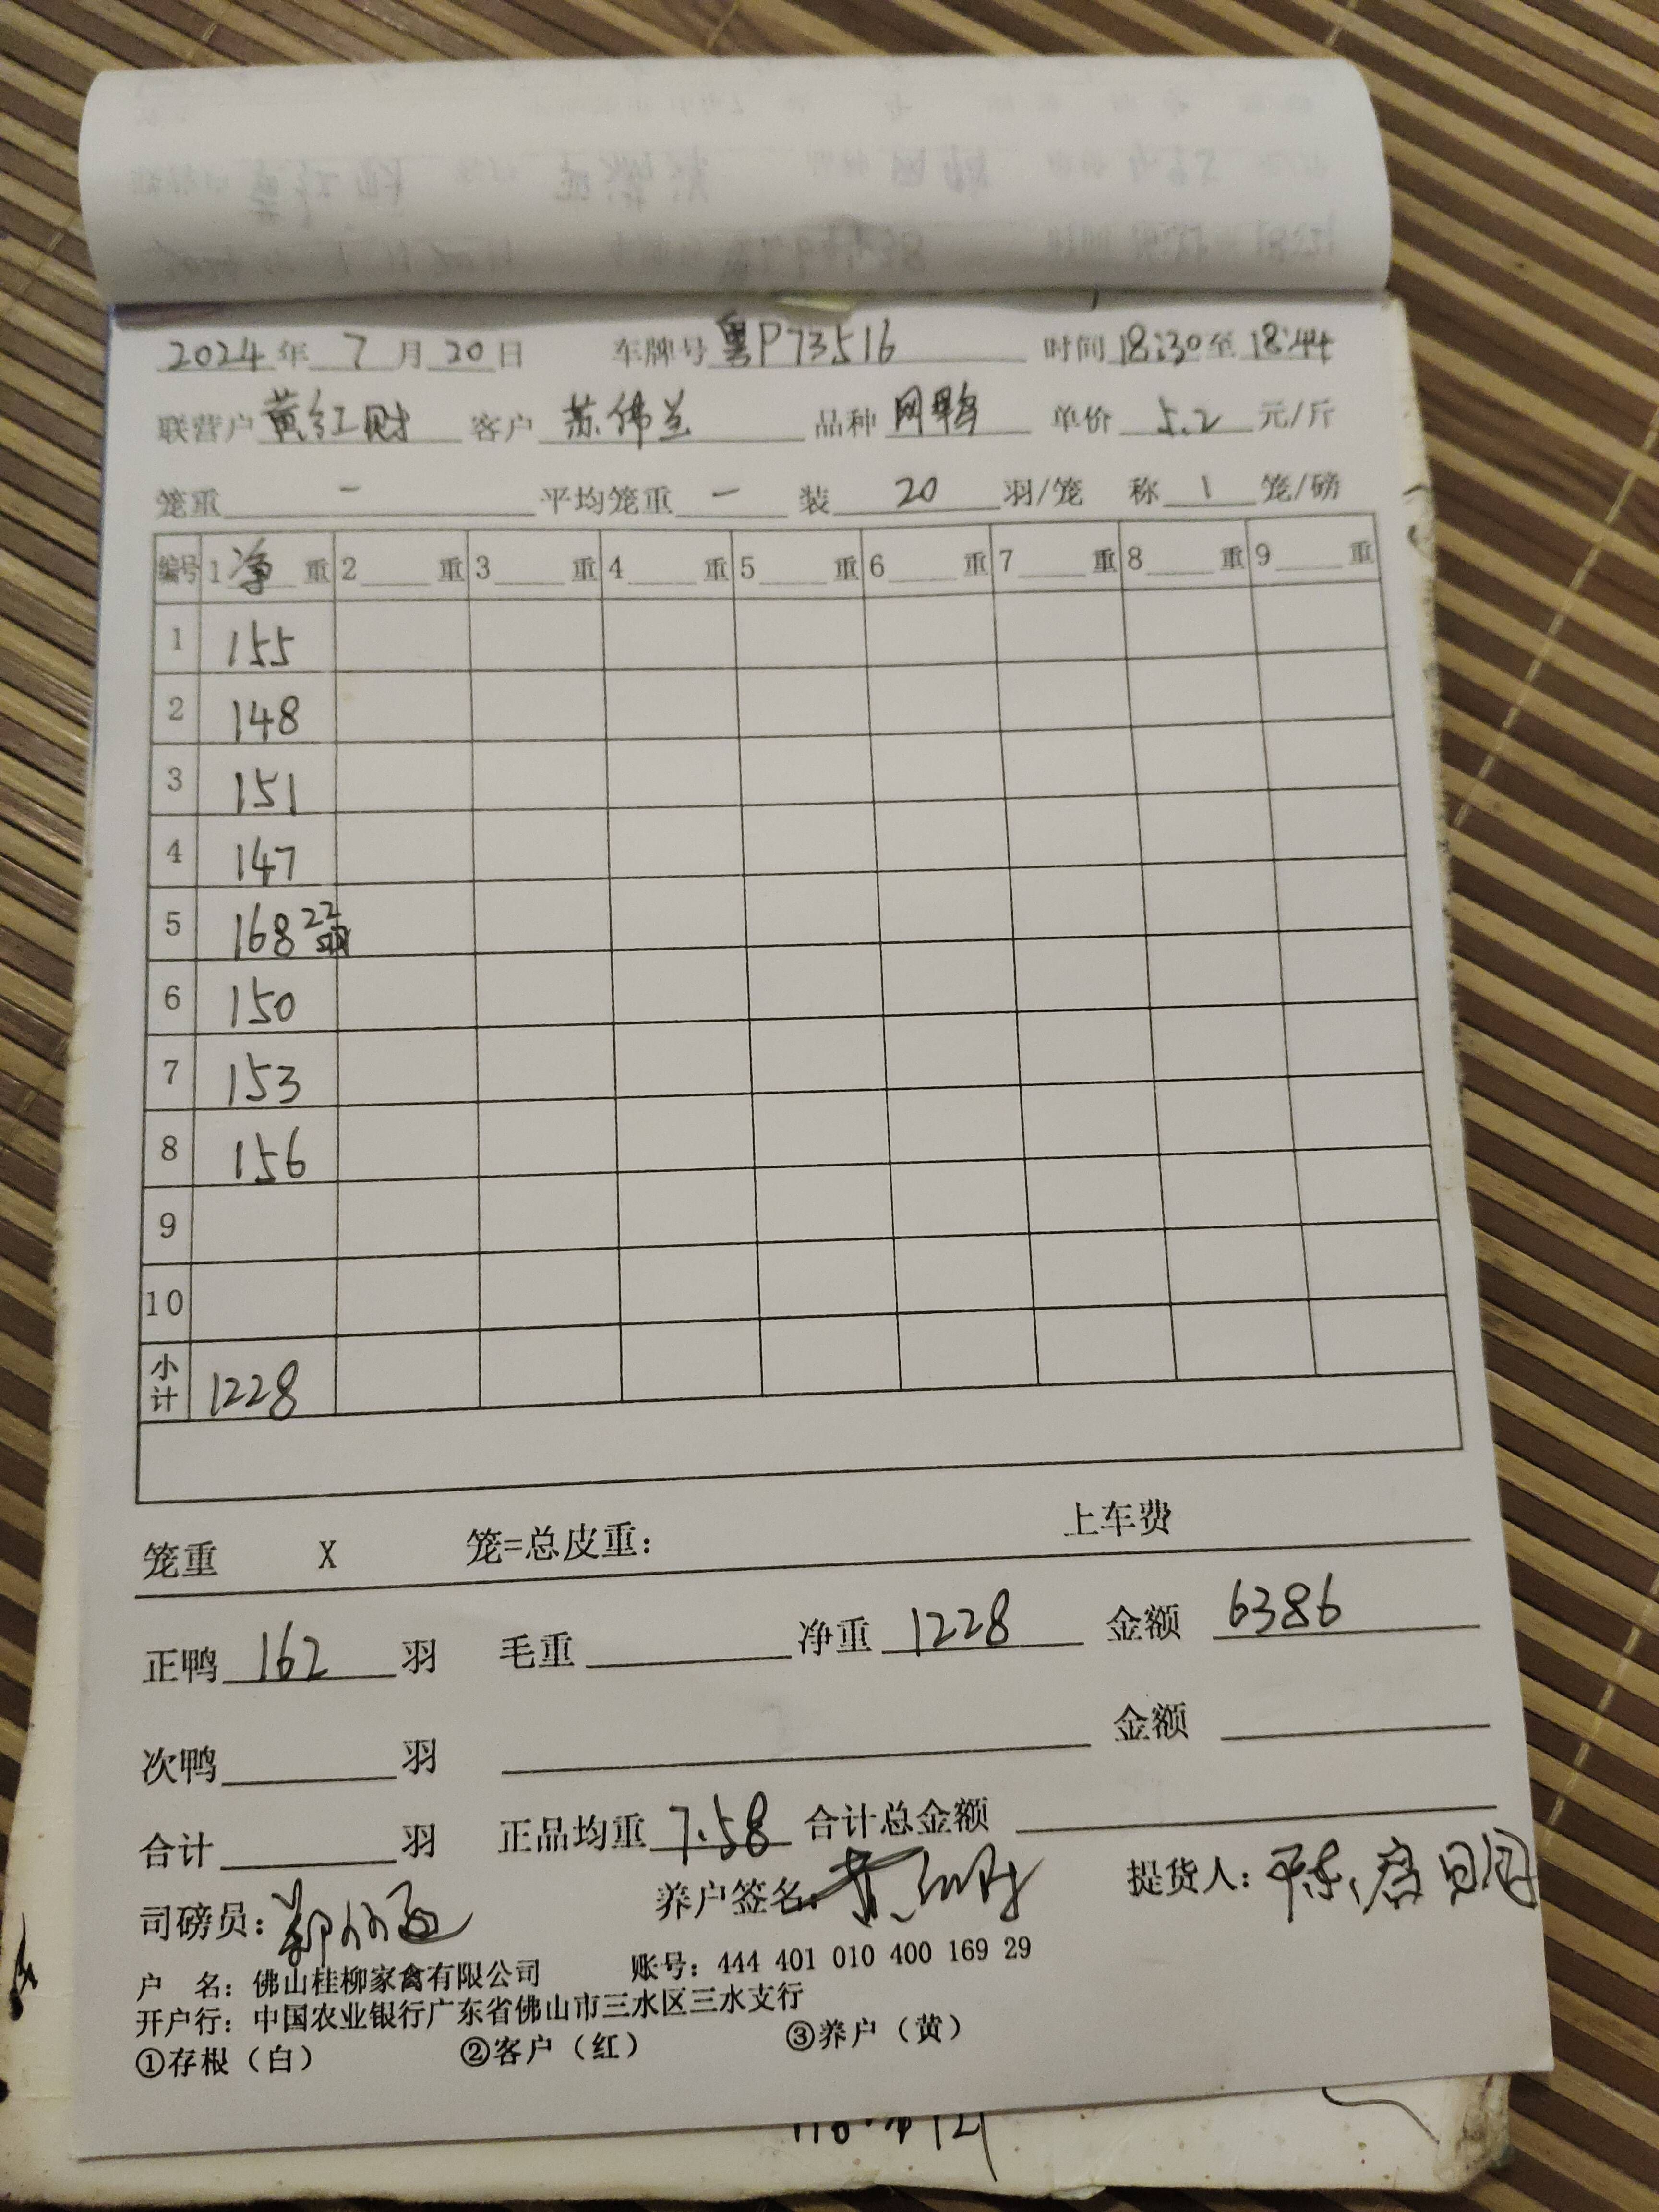 2024年 7月20日 车牌号 粤P73516 时间 18:30至 18:44
联营户 黄红财 客户 苏佛兰 品种 网鸭 单价 5.2 元/斤
笼重 - 平均笼重 - 装 20 羽/笼 称 1 笼/磅
编号 1 净 重 2 重 3 重 4 重 5 重 6 重 7 重 8 重 9 重
1 155
2 148
3 151
4 147
5 168 22
6 150
7 153
8 156
9
10
小计 1228
笼重 X 笼=总皮重: 上车费
正鸭 162 羽 毛重 净重 1228 金额 6386
次鸭 羽 金额
合计 羽 正品均重 7.58 合计总金额
司磅员: 养户签名: 提货人:
户 名: 佛山桂柳家禽有限公司 账号: 444 401 010 400 169 29
开户行: 中国农业银行广东省佛山市三水区三水支行
①存根（白） ②客户（红） ③养户（黄）